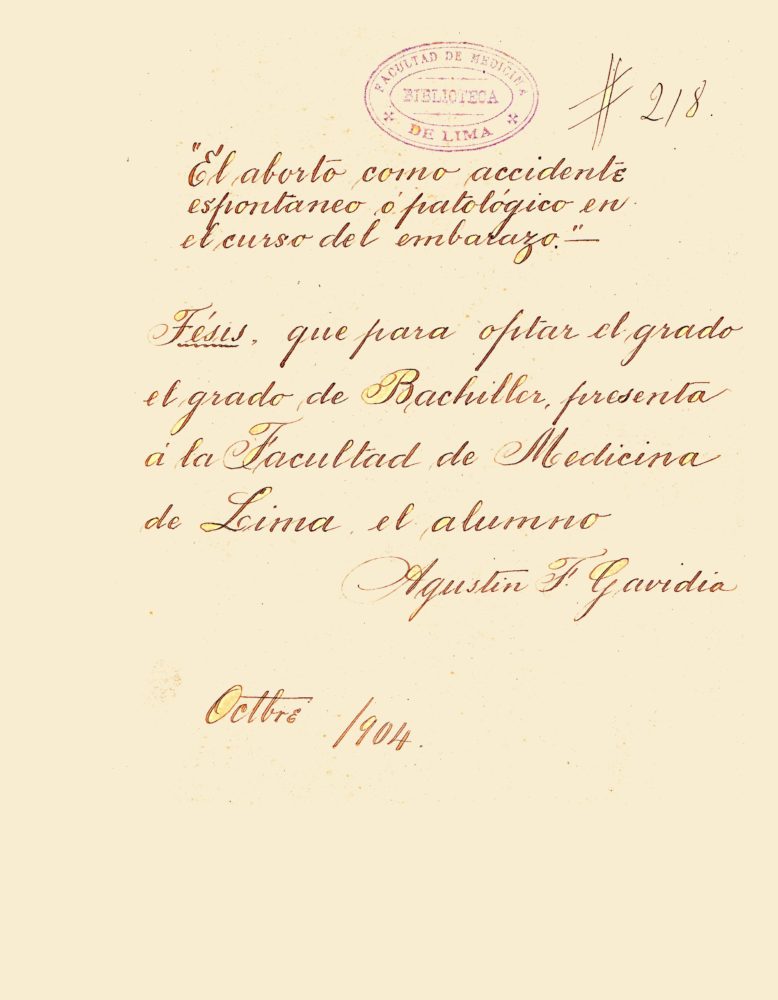 FACULTAD DE MEDICINA
BIBLIOTECA
DE LIMA
# 218.
"El aborto como accidente
espontaneo ó patológico en
el curso del embarazo."—
Tésis, que para optar el grado
el grado de Bachiller, presenta
á la Facultad de Medicina
de Lima, el alumno
Agustin F. Gavidia
Octbre 1904.